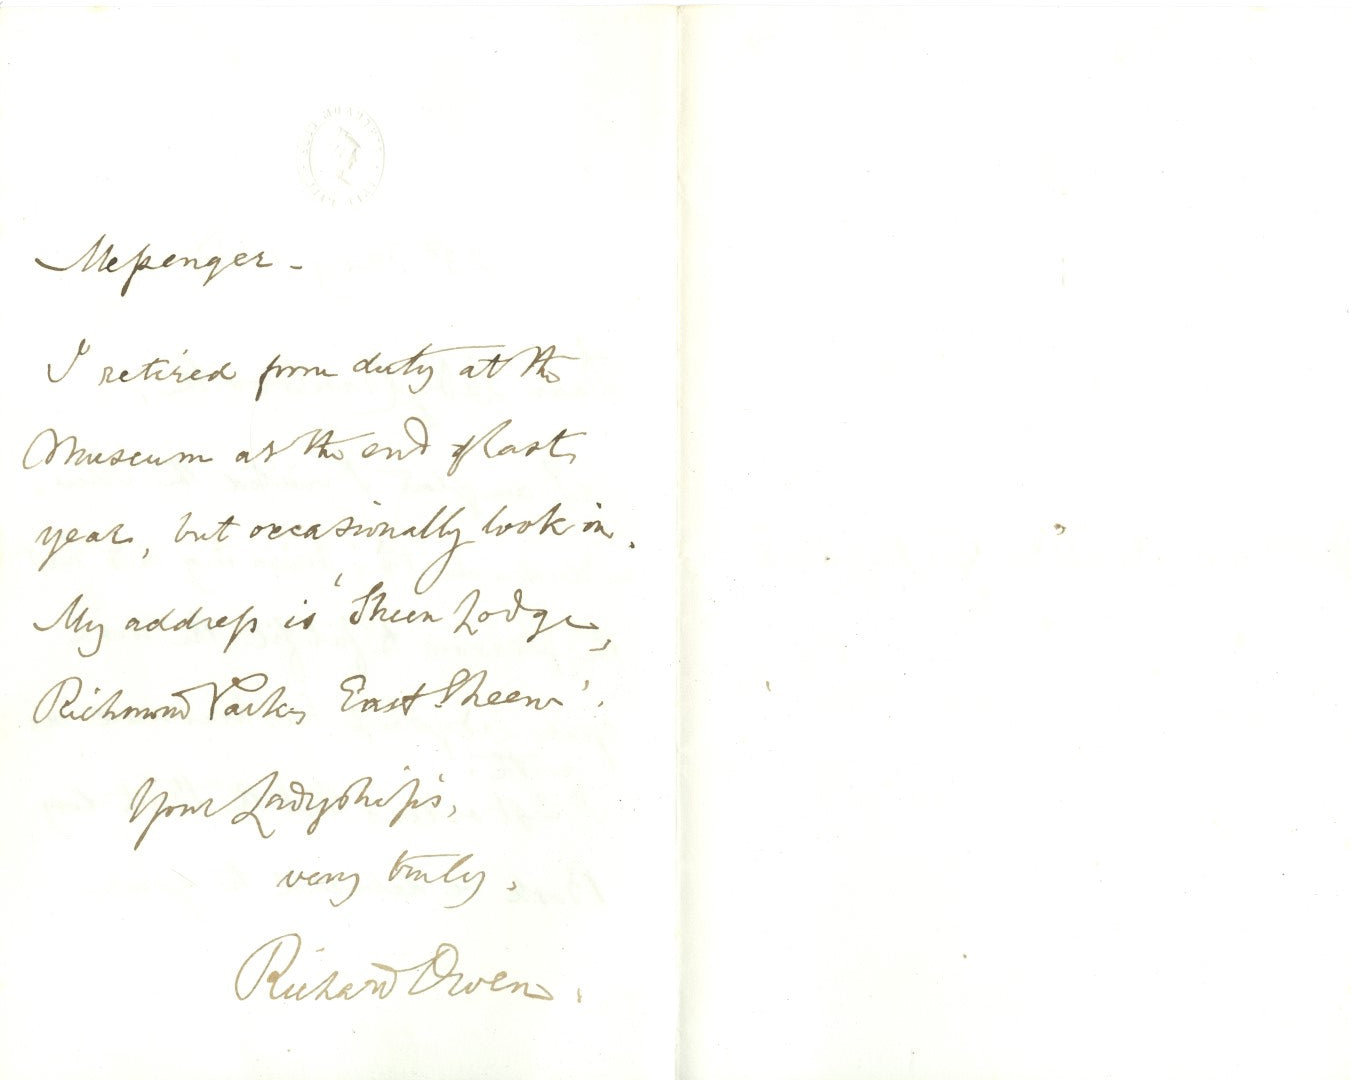 Messenger –
I retired from duty at the
Museum at the end of last
year, but occasionally look in.
My address is 'Sheen Lodge,
Richmond Park, East Sheen'.
Your Ladyship's,
very truly,
Richard Owen.